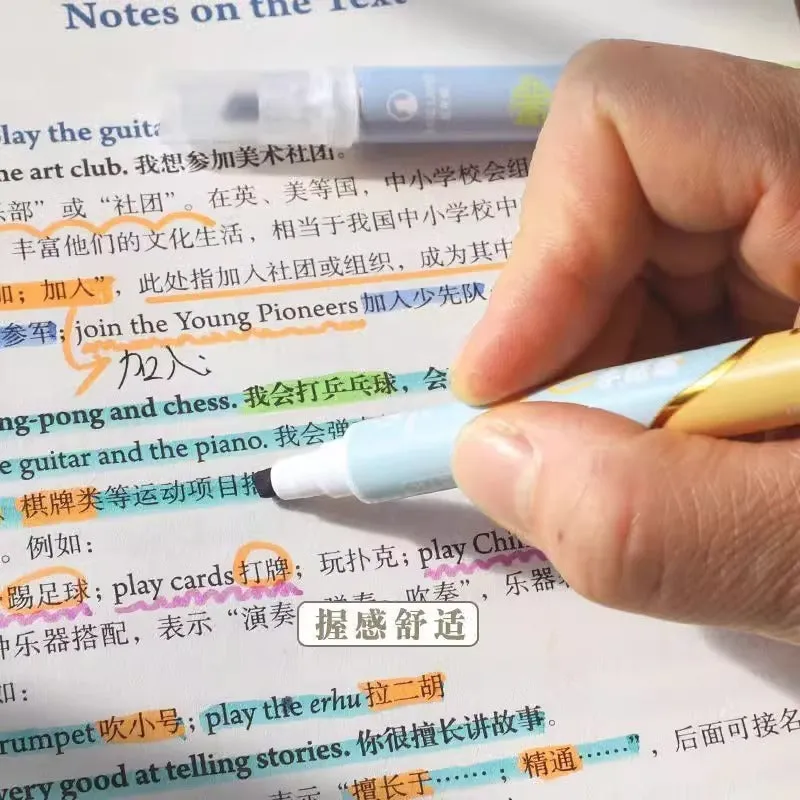 Notes on the Text
play the guita
ne art club. 我想参加美术社团。
乐部”或“社团”。在英、美等国，中小学校会组
丰富他们的文化生活，相当于我国中小学校中
加；加入”，此处指加入社团或组织，成为其中
参军；join the Young Pioneers 加入少先队
加入
ng-pong and chess. 我会打乒乓球，会
e guitar and the piano. 我会弹
棋牌类等运动项目搭
。例如：
踢足球；play cards 打牌；玩扑克；play Chin
种乐器搭配，表示“演奏、弹奏、吹奏”，乐器
握感舒适
如：
trumpet 吹小号；play the erhu 拉二胡
very good at telling stories. 你很擅长讲故事。
表示“擅长于……；精通……”，后面可接名